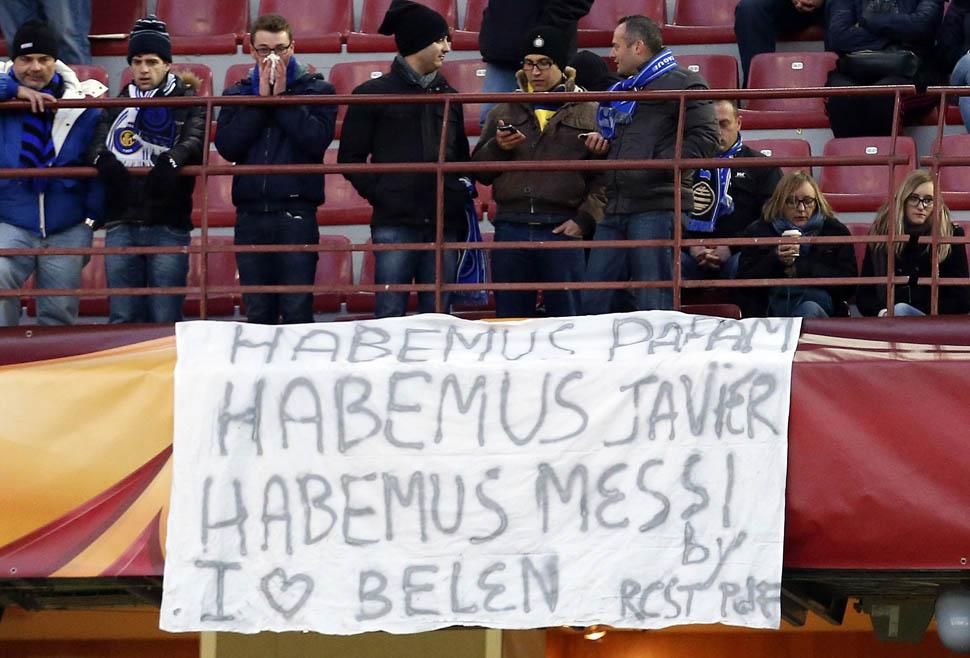 HABEMUS PAPAM
HABEMUS JAVIER
HABEMUS MESSI
I ♡ BELEN
by